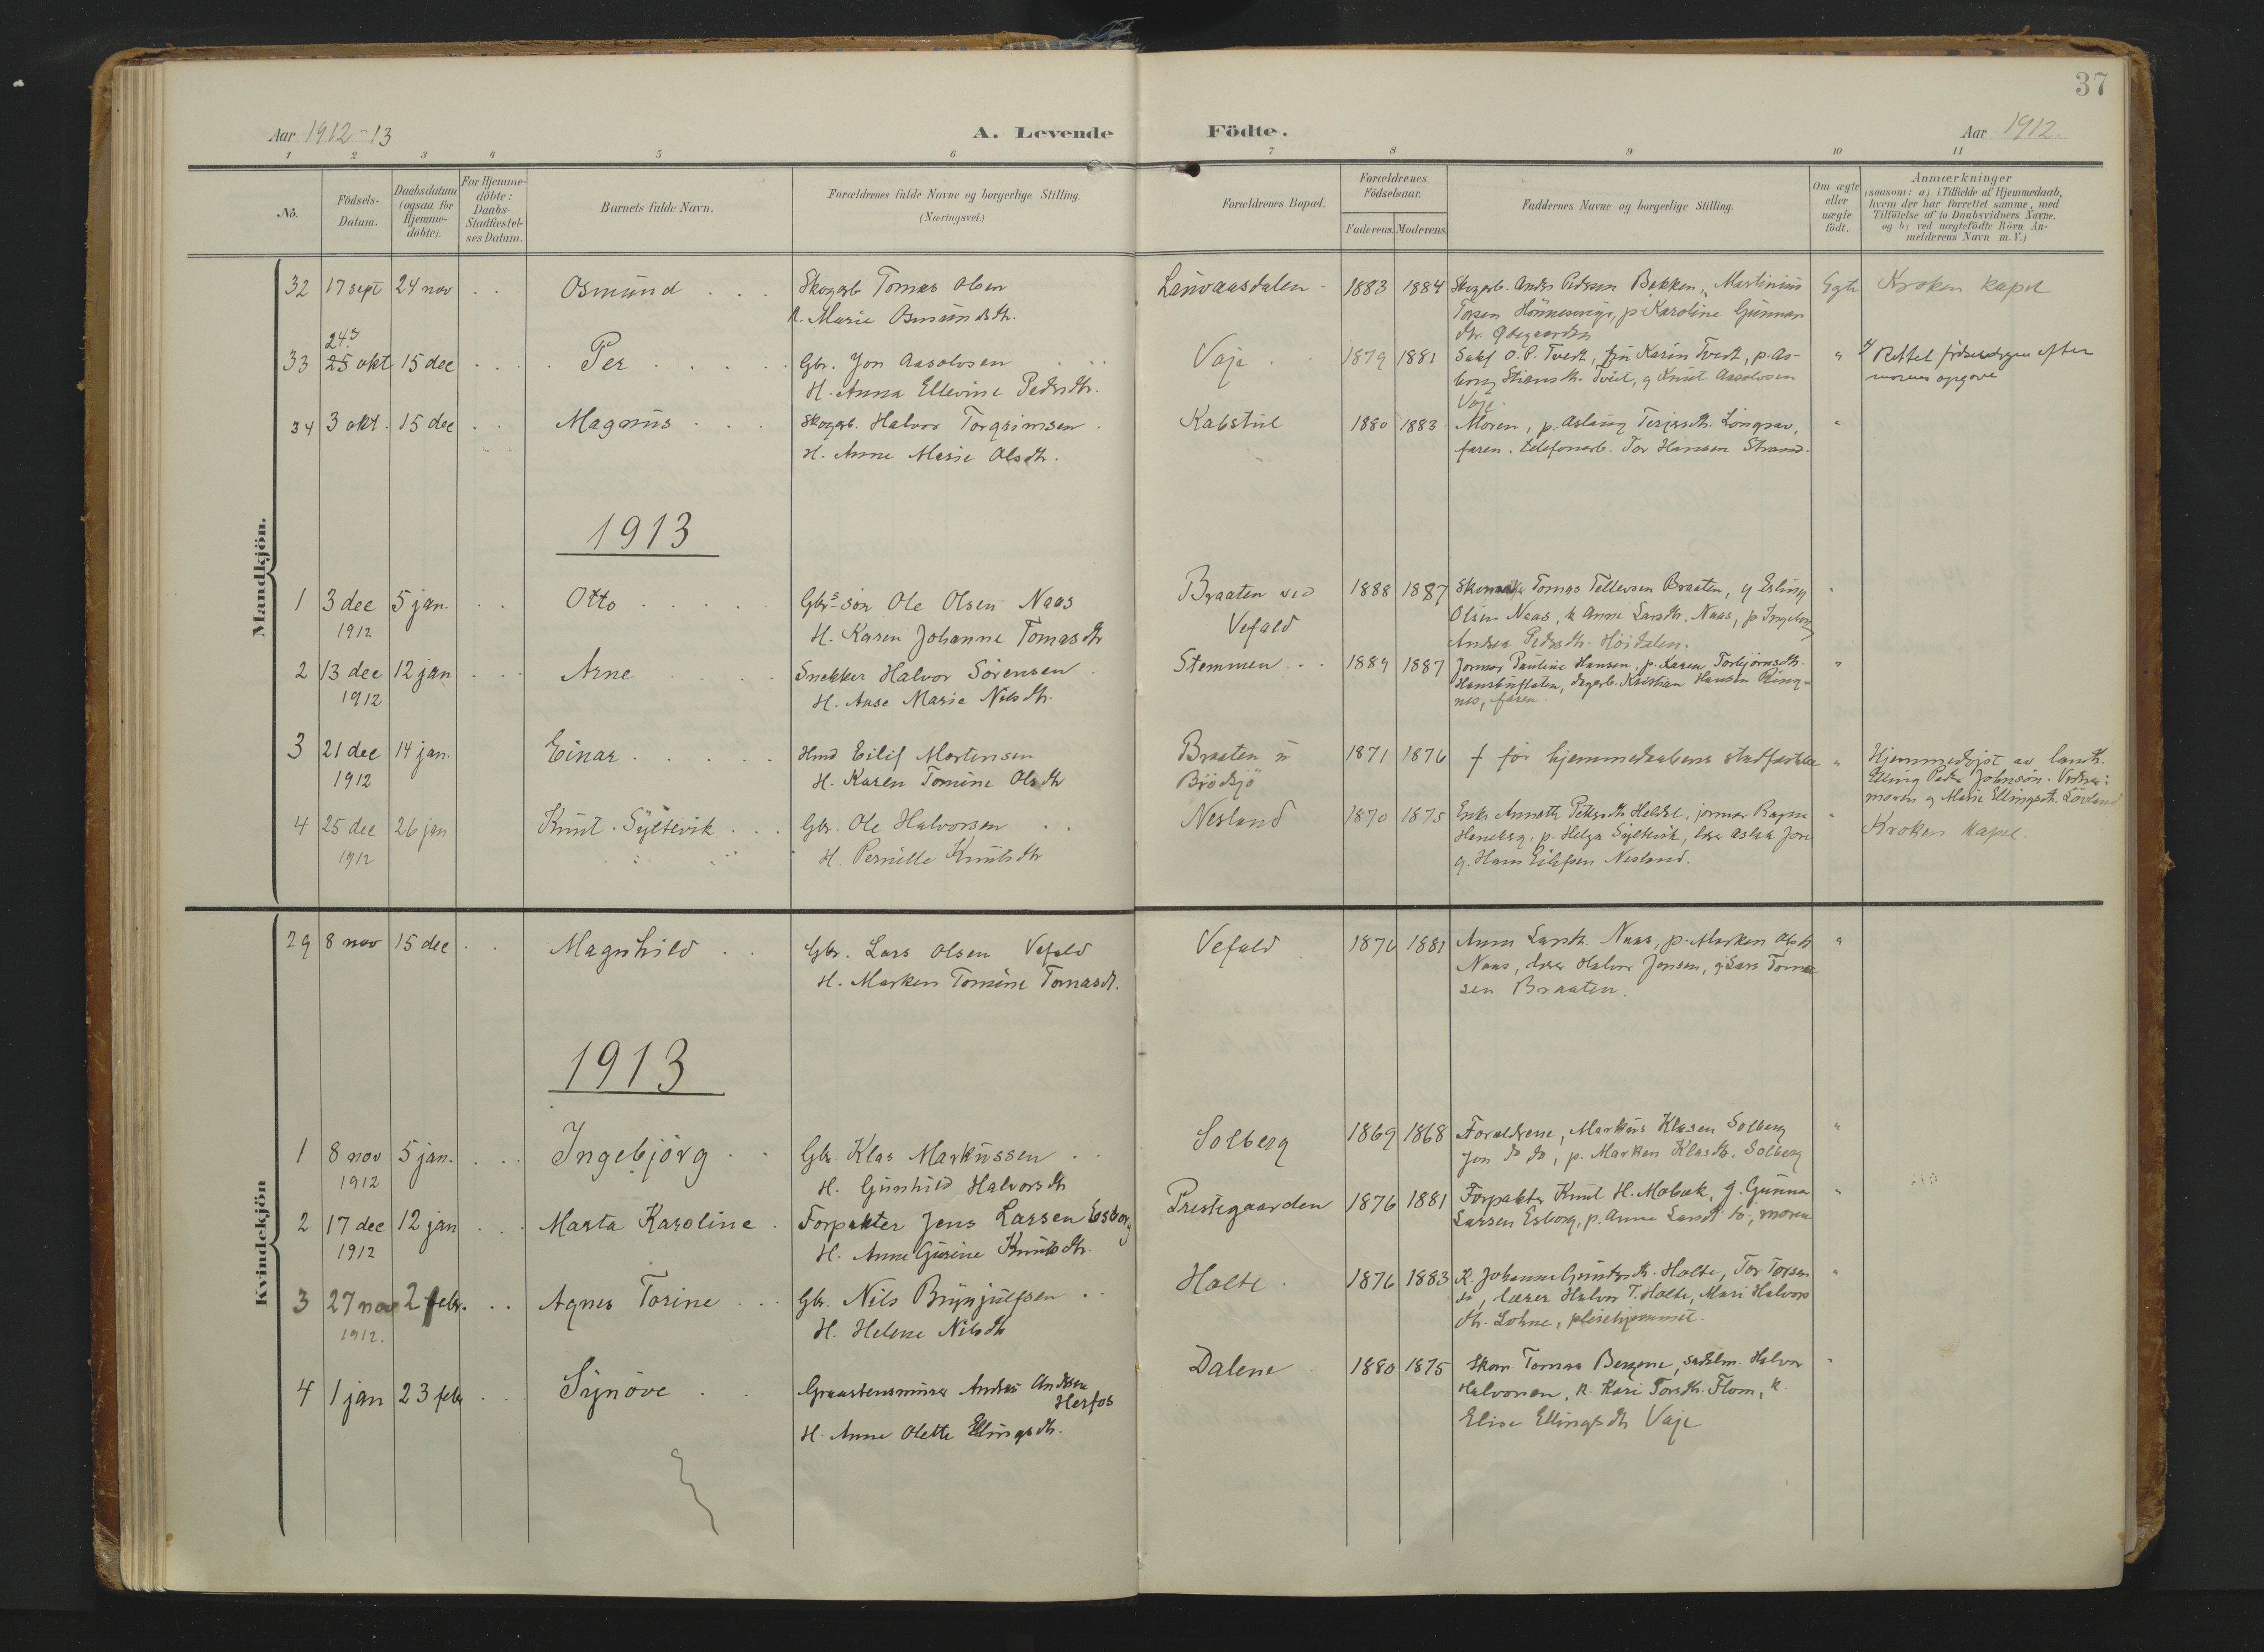 37
Aar 1912-13
A. Levende Födte.
Aar 1912.
1 2 3 4 5 6 7 8 9 10 11
No.
Födsels-Datum.
Daabsdatum (ogsaa for Hjemme-döbte).
For Hjemme-döbte: Daabs-Stadfæstel-ses Datum.
Barnets fulde Navn.
Forældrenes fulde Navne og borgerlige Stilling.
(Næringsvei.)
Forældrenes Bopæl.
Forældrenes Födselsaar.
Faderens. Moderens.
Faddernes Navne og borgerlige Stilling.
Om ægte eller uægte födt.
Anmærkninger
(saasom: a) i Tilfælde af Hjemmedaab,
hvem der har forrettet samme, med
Tilföielse af to Daabsvidners Navne.
og b) ved uægtefödte Börn An-
melderens Navn m. V.)
Mandkjön.
32 17 sept 24 nov Osmund Skogarb Tomas Olsen 1883 1884 Skogarb. Anders Pedersen Bakken, Martinius Egte Kroken kapel
Marie Osmundsdtr. Karoline Gunnars
dtr.
24
33 25 okt 15 dec Per Gbr. Jon Aasolvsen Vaje 1879 1881 O. P. Tveit, Karin Tveit, p. As- " Rettet födselsdagen efter
H. Anna Ellevine Pedersdtr. Tveit, g Knut Aasolvsen morens opgave
Vaje.
34 3 okt. 15 dec Magnus Skogarb. Halvor Torgrimsen Kabstul 1880 1883 Moren, p. Aslaug Terjesdtr. "
H. Anne Marie Olsdtr. faren. telefonarb. Tor Hansen Strand.
1913
1 3 dec 5 jan. Otto Gbrs-sön Ole Olsen Naas Braaten ved 1888 1887 Skomaker Tomas Tellevsen Braaten, g Erling "
1912 H. Karen Johanne Tomasdtr Vefald Olsen Naas, k Anne Larsdtr. Naas, p Ingeborg
Andrea Pedersdtr. Höidalen.
2 13 dec 12 jan Arne Snekker Halvor Sörensen Stemmen 1889 1887 Jormor Pauline Hansen, p. Karen Torbjörnsdtr. "
1912 H. Aase Marie Nilsdtr. dagarb. Kristian Hansen Ring-
nes, faren
3 21 dec 14 jan. Einar Hmd Eilif Mortensen Braaten u 1871 1876 † för hjemmedaabens stadfæstelse " Hjemmedöpt av landh.
1912 H. Karen Tomine Olsdtr Brödsjö Elling Peder Johnsön. Vidner:
moren og Marie Ellingsdtr. Lövland
4 25 dec 26 jan Knut Syltevik Gbr. Ole Halvorsen Nesland 1870 1875 Enke Annette Pedersdtr , jormor Ragna " Kroken kapel.
1912 H. Pernille Knutsdtr p. Helga Syltevik, lærer Aslak
g. Hans Eilefsen Nesland.
29 8 nov 15 dec Magnhild Gbr. Lars Olsen Vefald Vefald 1876 1881 Anne Larsdtr. Naas, p. Marken Olsdtr "
H. Marken Tomine Tomasd. Naas, lærer Halvor Jensen, g Lars Toma-
sen Braaten.
1913
Kvindekjön
1 8 nov 5 jan. Ingebjörg Gbr. Klas Markussen Solberg 1869 1868 Forældrene, Markus Klasen Solberg "
1912 H. Gunhild Halvorsdtr Jon do do, p. Marken Klasdtr. Solberg
2 17 dec 12 jan Marta Karoline Forpakter Jens Larsen Esborg Prestegaarden 1876 1881 Forpakter Knut H. Mobæk, g. Gunna "
1912 H. Anne Gurine Knutsdtr. Larsen Esborg, p. Anne Larsdtr do, moren
3 27 nov 2 febr. Agnes Torine Gbr. Nils Brynjulfsen Holte 1876 1883 K. Johanne Holte, Tor Torsen "
1912. H. Helene Nilsdtr do, lærer Halvor T. Holte, Mari Halvors
dtr. Lohne, pleiehjemmet.
4 1 jan 23 febr Synöve Graastensmurer Anders Andersen Herfos Dalene 1880 1875 Skom. Tomas Bergene, sadelm. Halvor "
H. Anne Olette Ellingsdtr. Halvorsen, k. Kari Torsdtr. Flom, k.
Elise Ellingsdtr Vaje